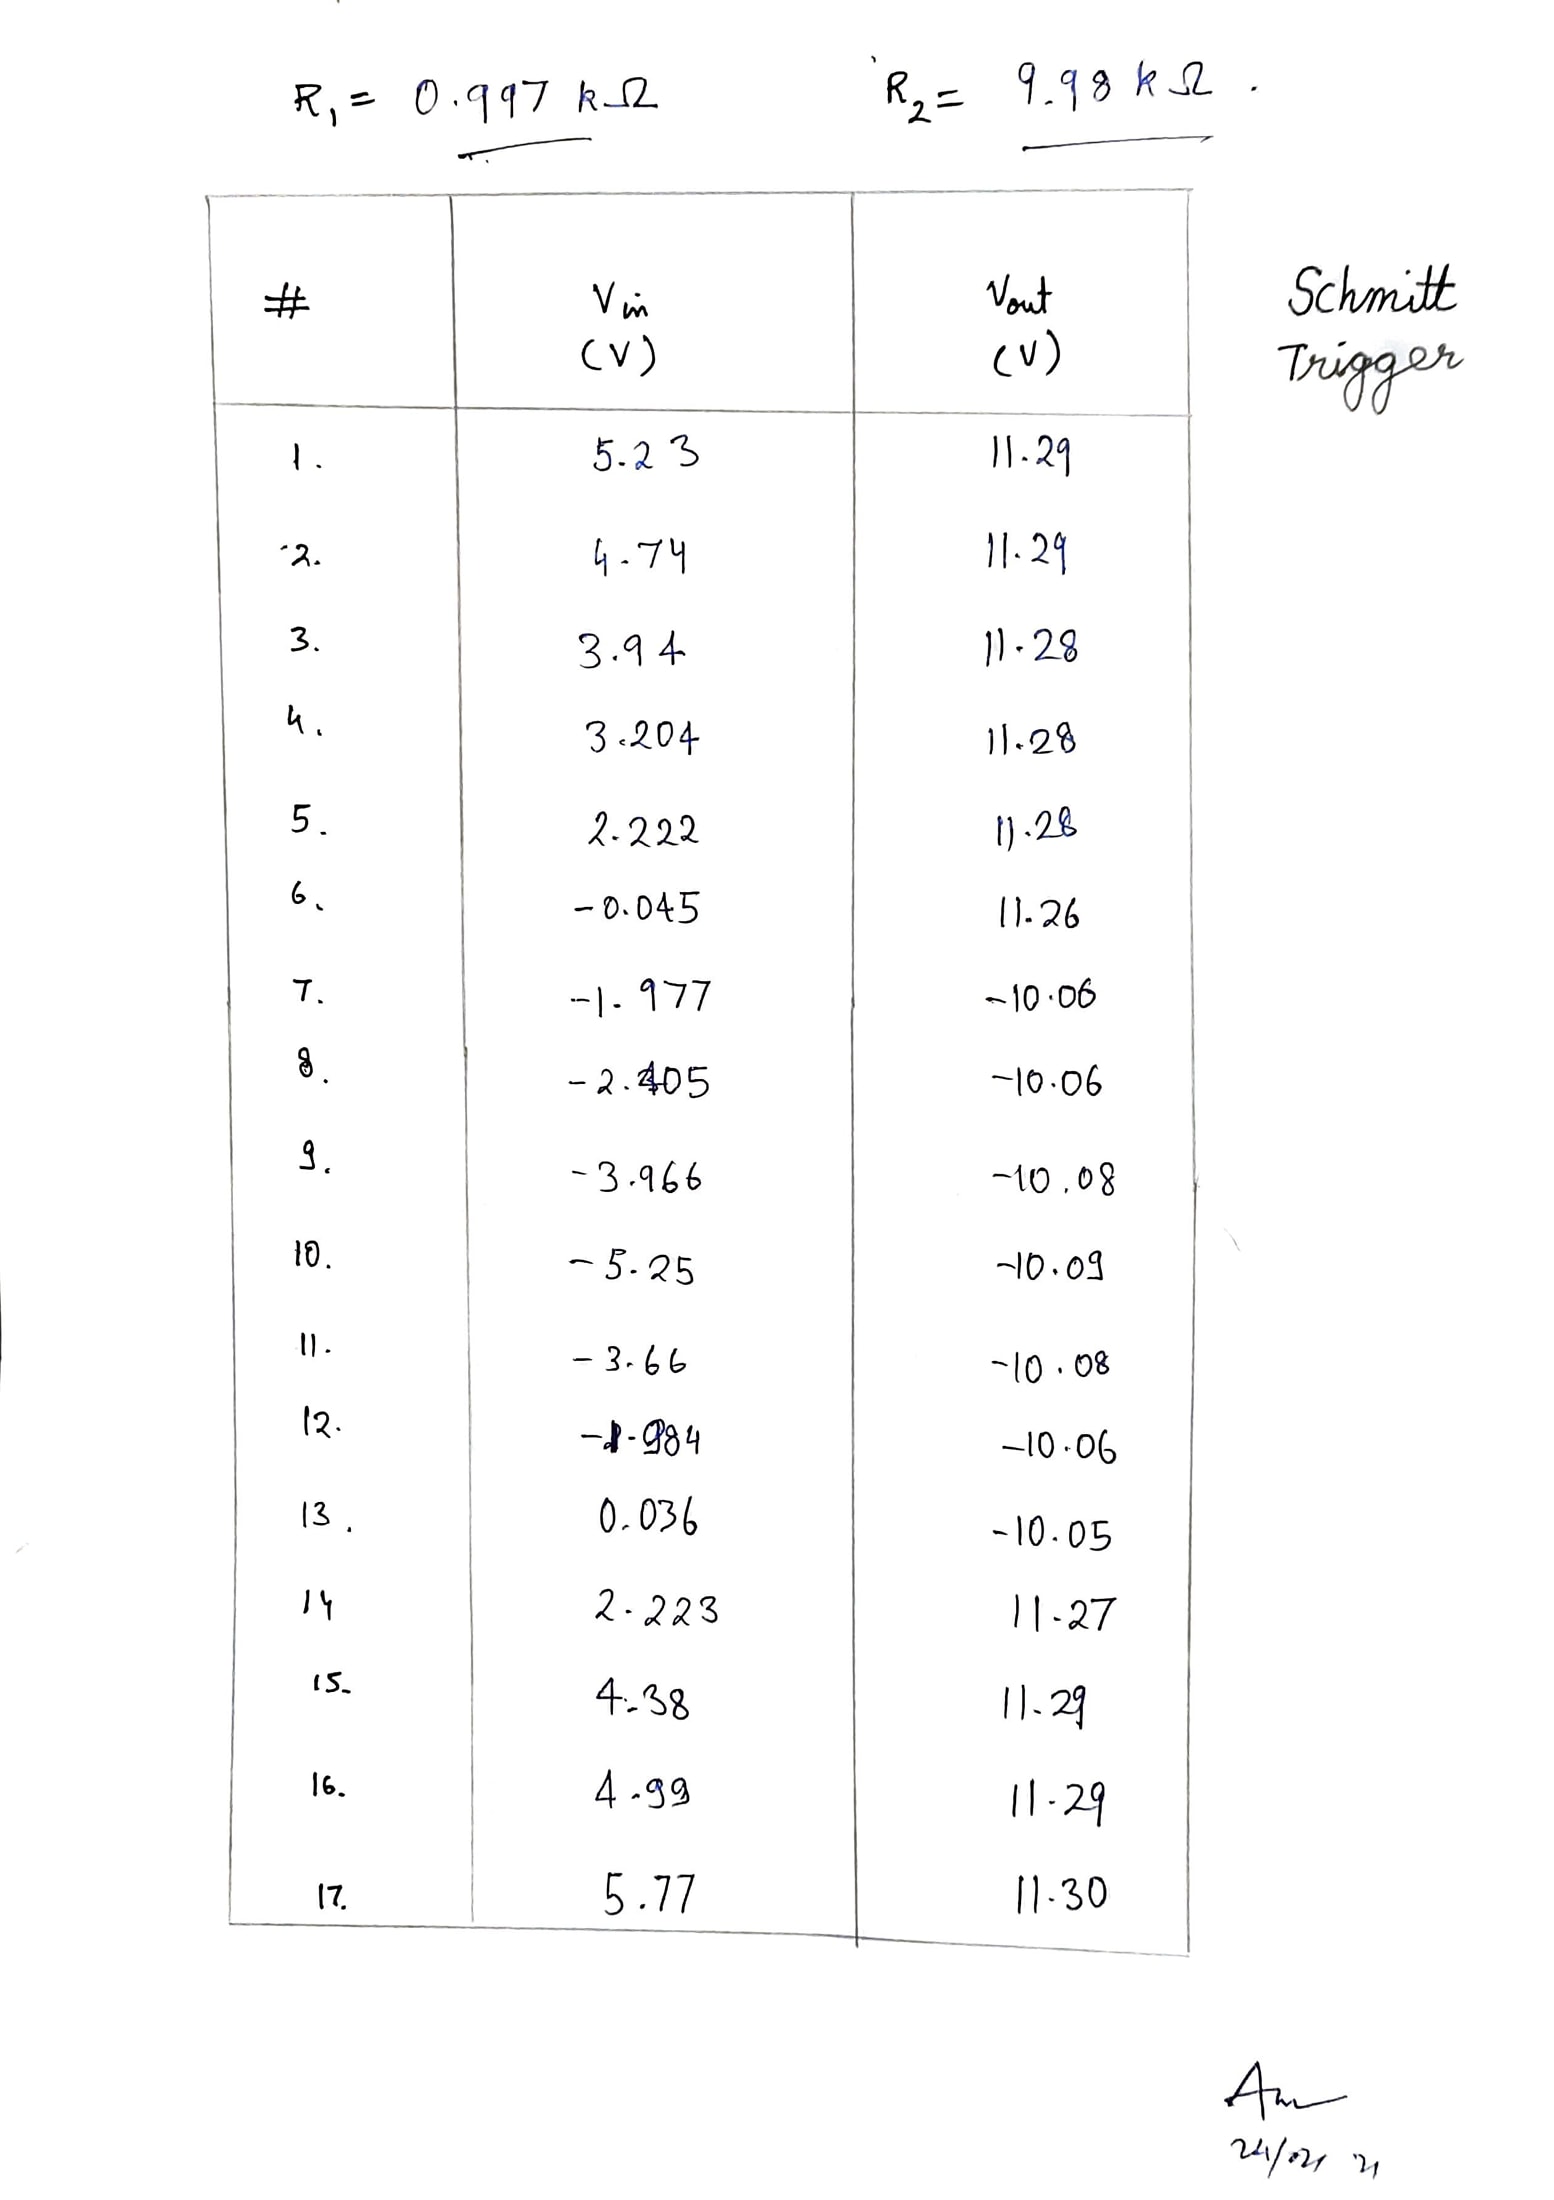 R₁ = 0.997 kΩ R₂ = 9.98 kΩ.
# Vin (V) Vout (V)
Schmitt
Trigger
1. 5.23 11.29
2. 4.74 11.29
3. 3.94 11.28
4. 3.204 11.28
5. 2.222 11.28
6. -0.045 11.26
7. -1.977 -10.06
8. -2.405 -10.06
9. -3.966 -10.08
10. -5.25 -10.09
11. -3.66 -10.08
12. -1.984 -10.06
13. 0.036 -10.05
14 2.223 11.27
15. 4.38 11.29
16. 4.99 11.29
17. 5.77 11.30